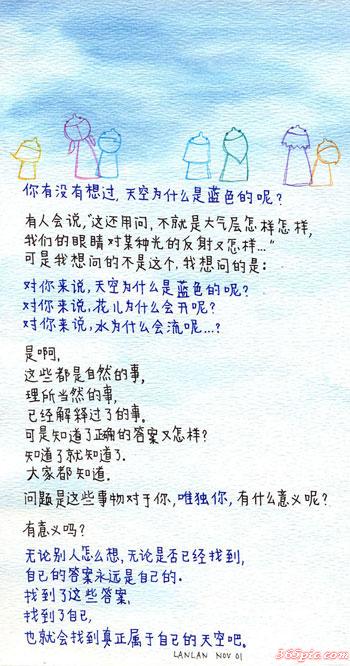 你有没有想过, 天空为什么是蓝色的呢?
有人会说, "这还用问, 不就是大气层怎样怎样,
我们的眼睛对某种光的反射又怎样..."
可是我想问的不是这个, 我想问的是:
对你来说, 天空为什么是蓝色的呢?
对你来说, 花儿为什么会开呢?
对你来说, 水为什么会流呢...?
是啊,
这些都是自然的事,
理所当然的事,
已经解释过了的事.
可是知道了正确的答案又怎样?
知道了就知道了.
大家都知道.
问题是这些事物对于你, 唯独你, 有什么意义呢?
有意义吗?
无论别人怎么想, 无论是否已经找到,
自己的答案永远是自己的.
找到了这些答案,
找到了自己,
也就会找到真正属于自己的天空吧.
LANLAN NOV 01
365pic.com